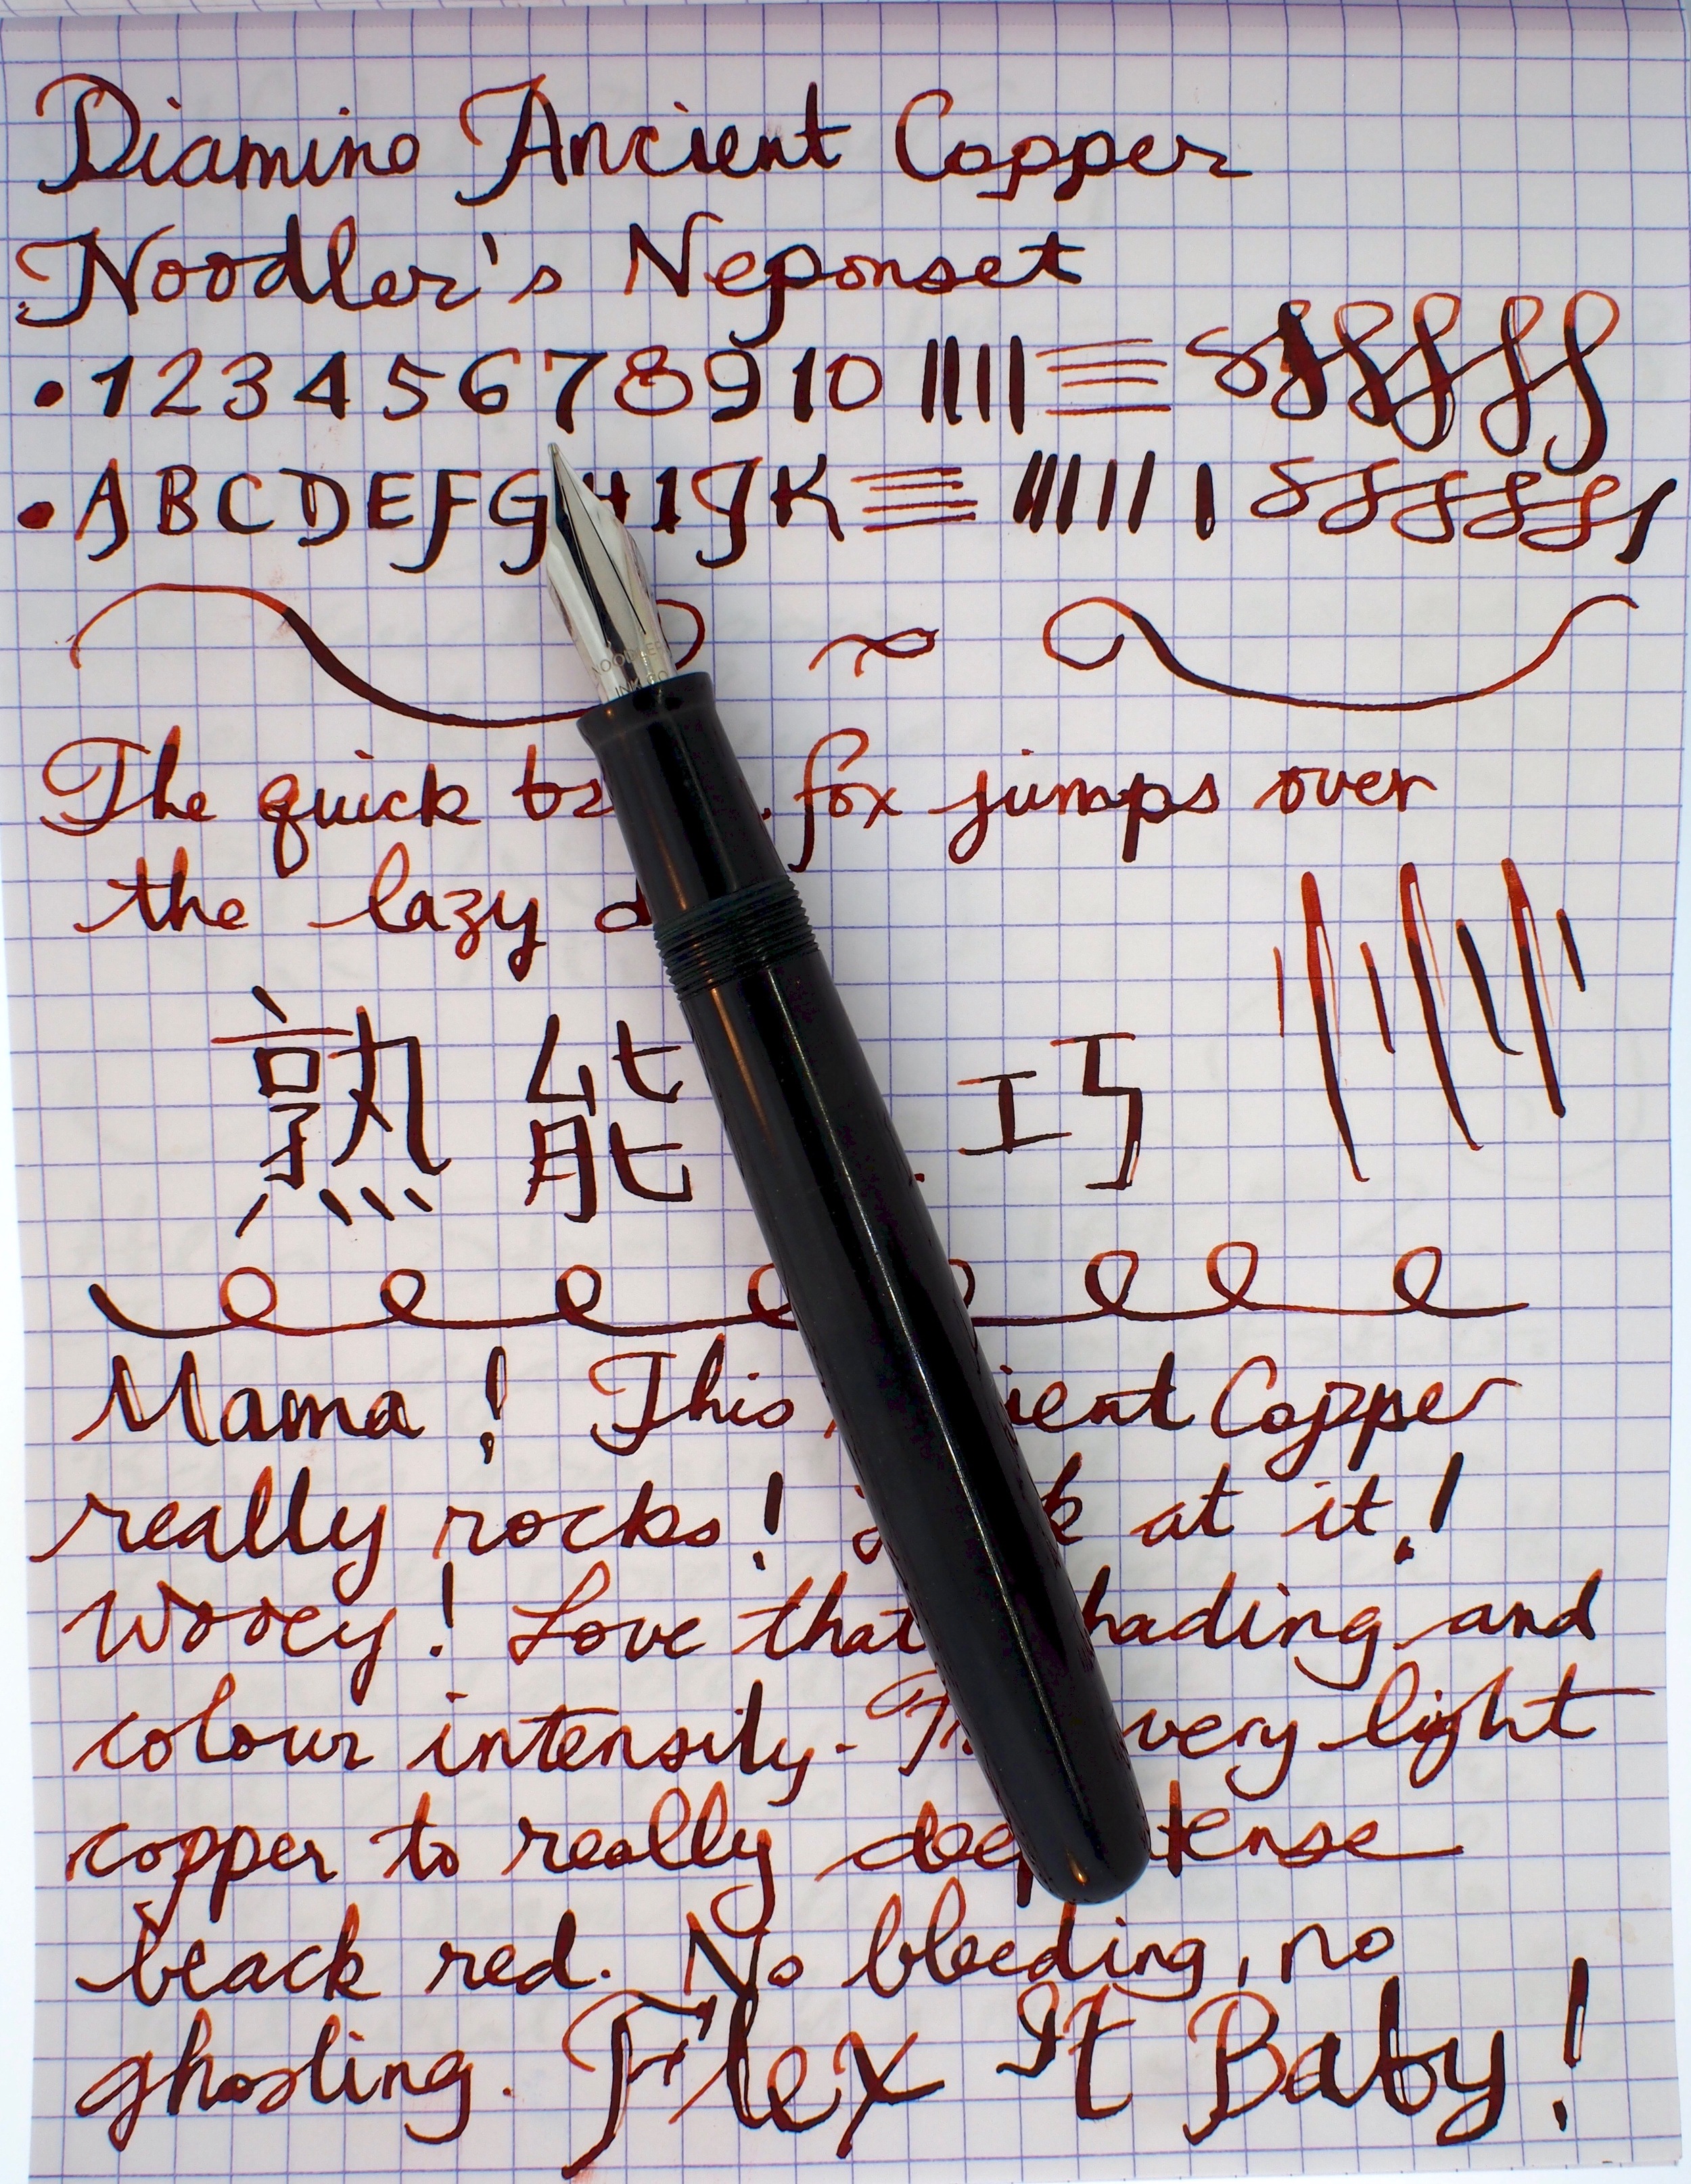 Diamine Ancient Copper
Noodler's Neponset
• 1 2 3 4 5 6 7 8 9 10
• A B C D E F G H I J K
NOODLER
INK CO
The quick fox jumps over
the lazy
熟 能 巧
Mama! This Copper
really rocks! at it!
Wooey! Love that and
colour intensity. very light
copper to really
black red. No bleeding, no
ghosting. Flex It Baby!